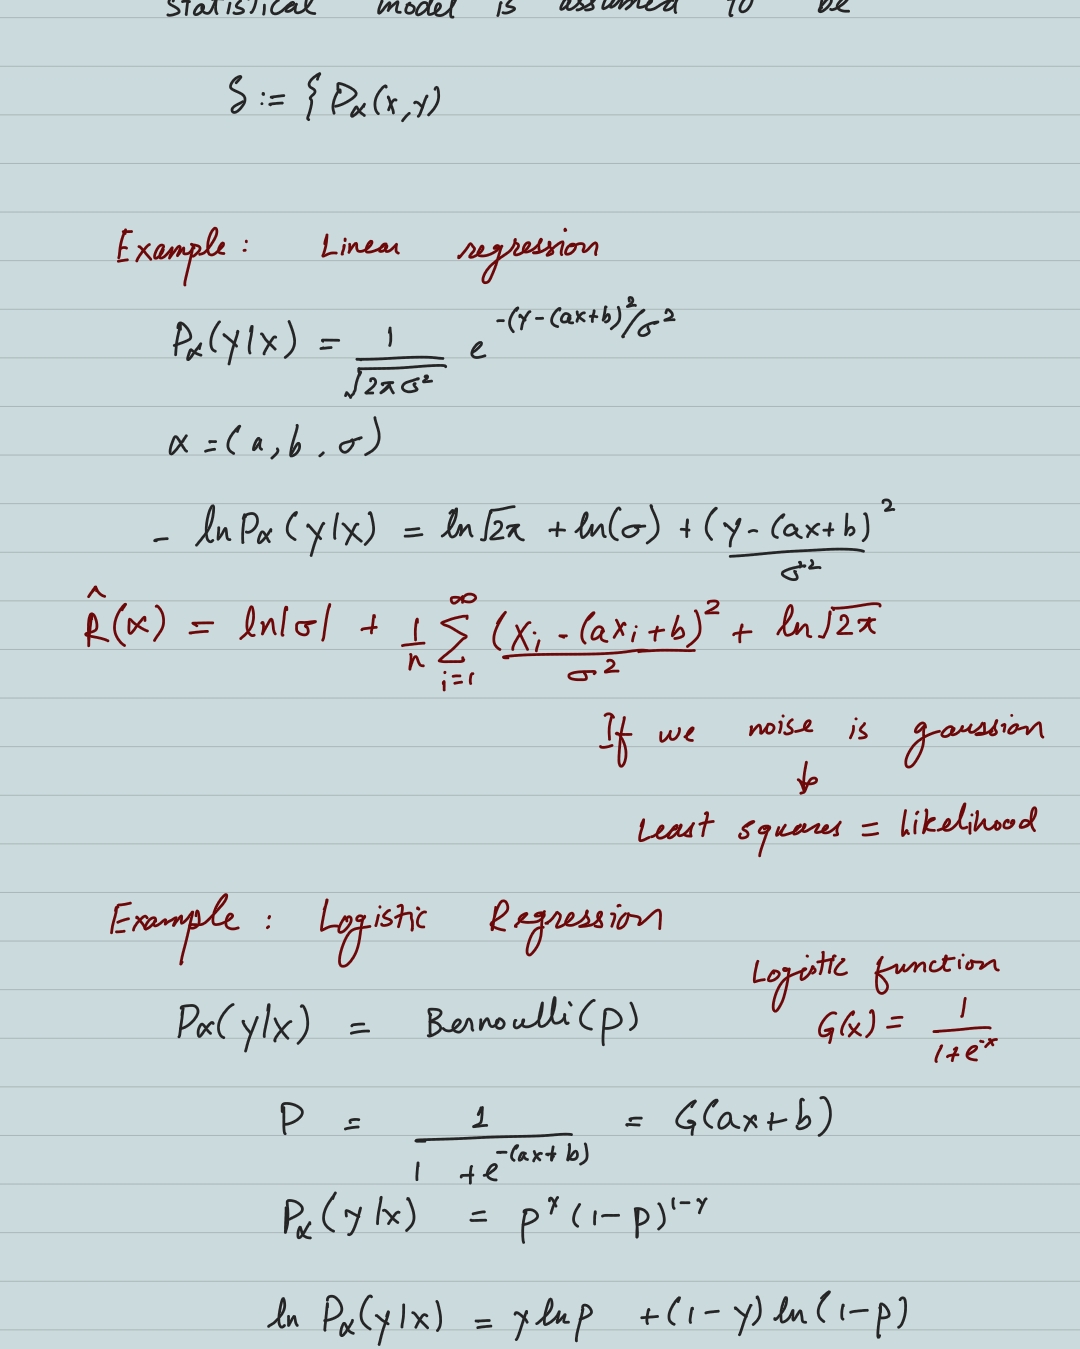 statistical model is assumed to be
S := { Pα(x,y)
Example: Linear regression
Pα(y|x) = 1/√(2πσ²) e^(-(y-(ax+b)²/σ²
α = (a, b, σ)
- ln Pα(y|x) = ln√2π + ln(σ) + (y-(ax+b)²/σ²
R̂(α) = ln|σ| + 1/n ∑_{i=1}^{∞} (Xi - (axi+b)²/σ² + ln√2π
If we noise is gaussian
↓
Least squares = likelihood
Example: Logistic Regression
Logistic function
Pα(y|x) = Bernoulli(p) G(x) = 1/(1+e^-x)
P = 1/(1+e^-(ax+b)) = G(ax+b)
Pα(y|x) = p^y (1-p)^1-y
ln Pα(y|x) = y ln p + (1-y) ln(1-p)